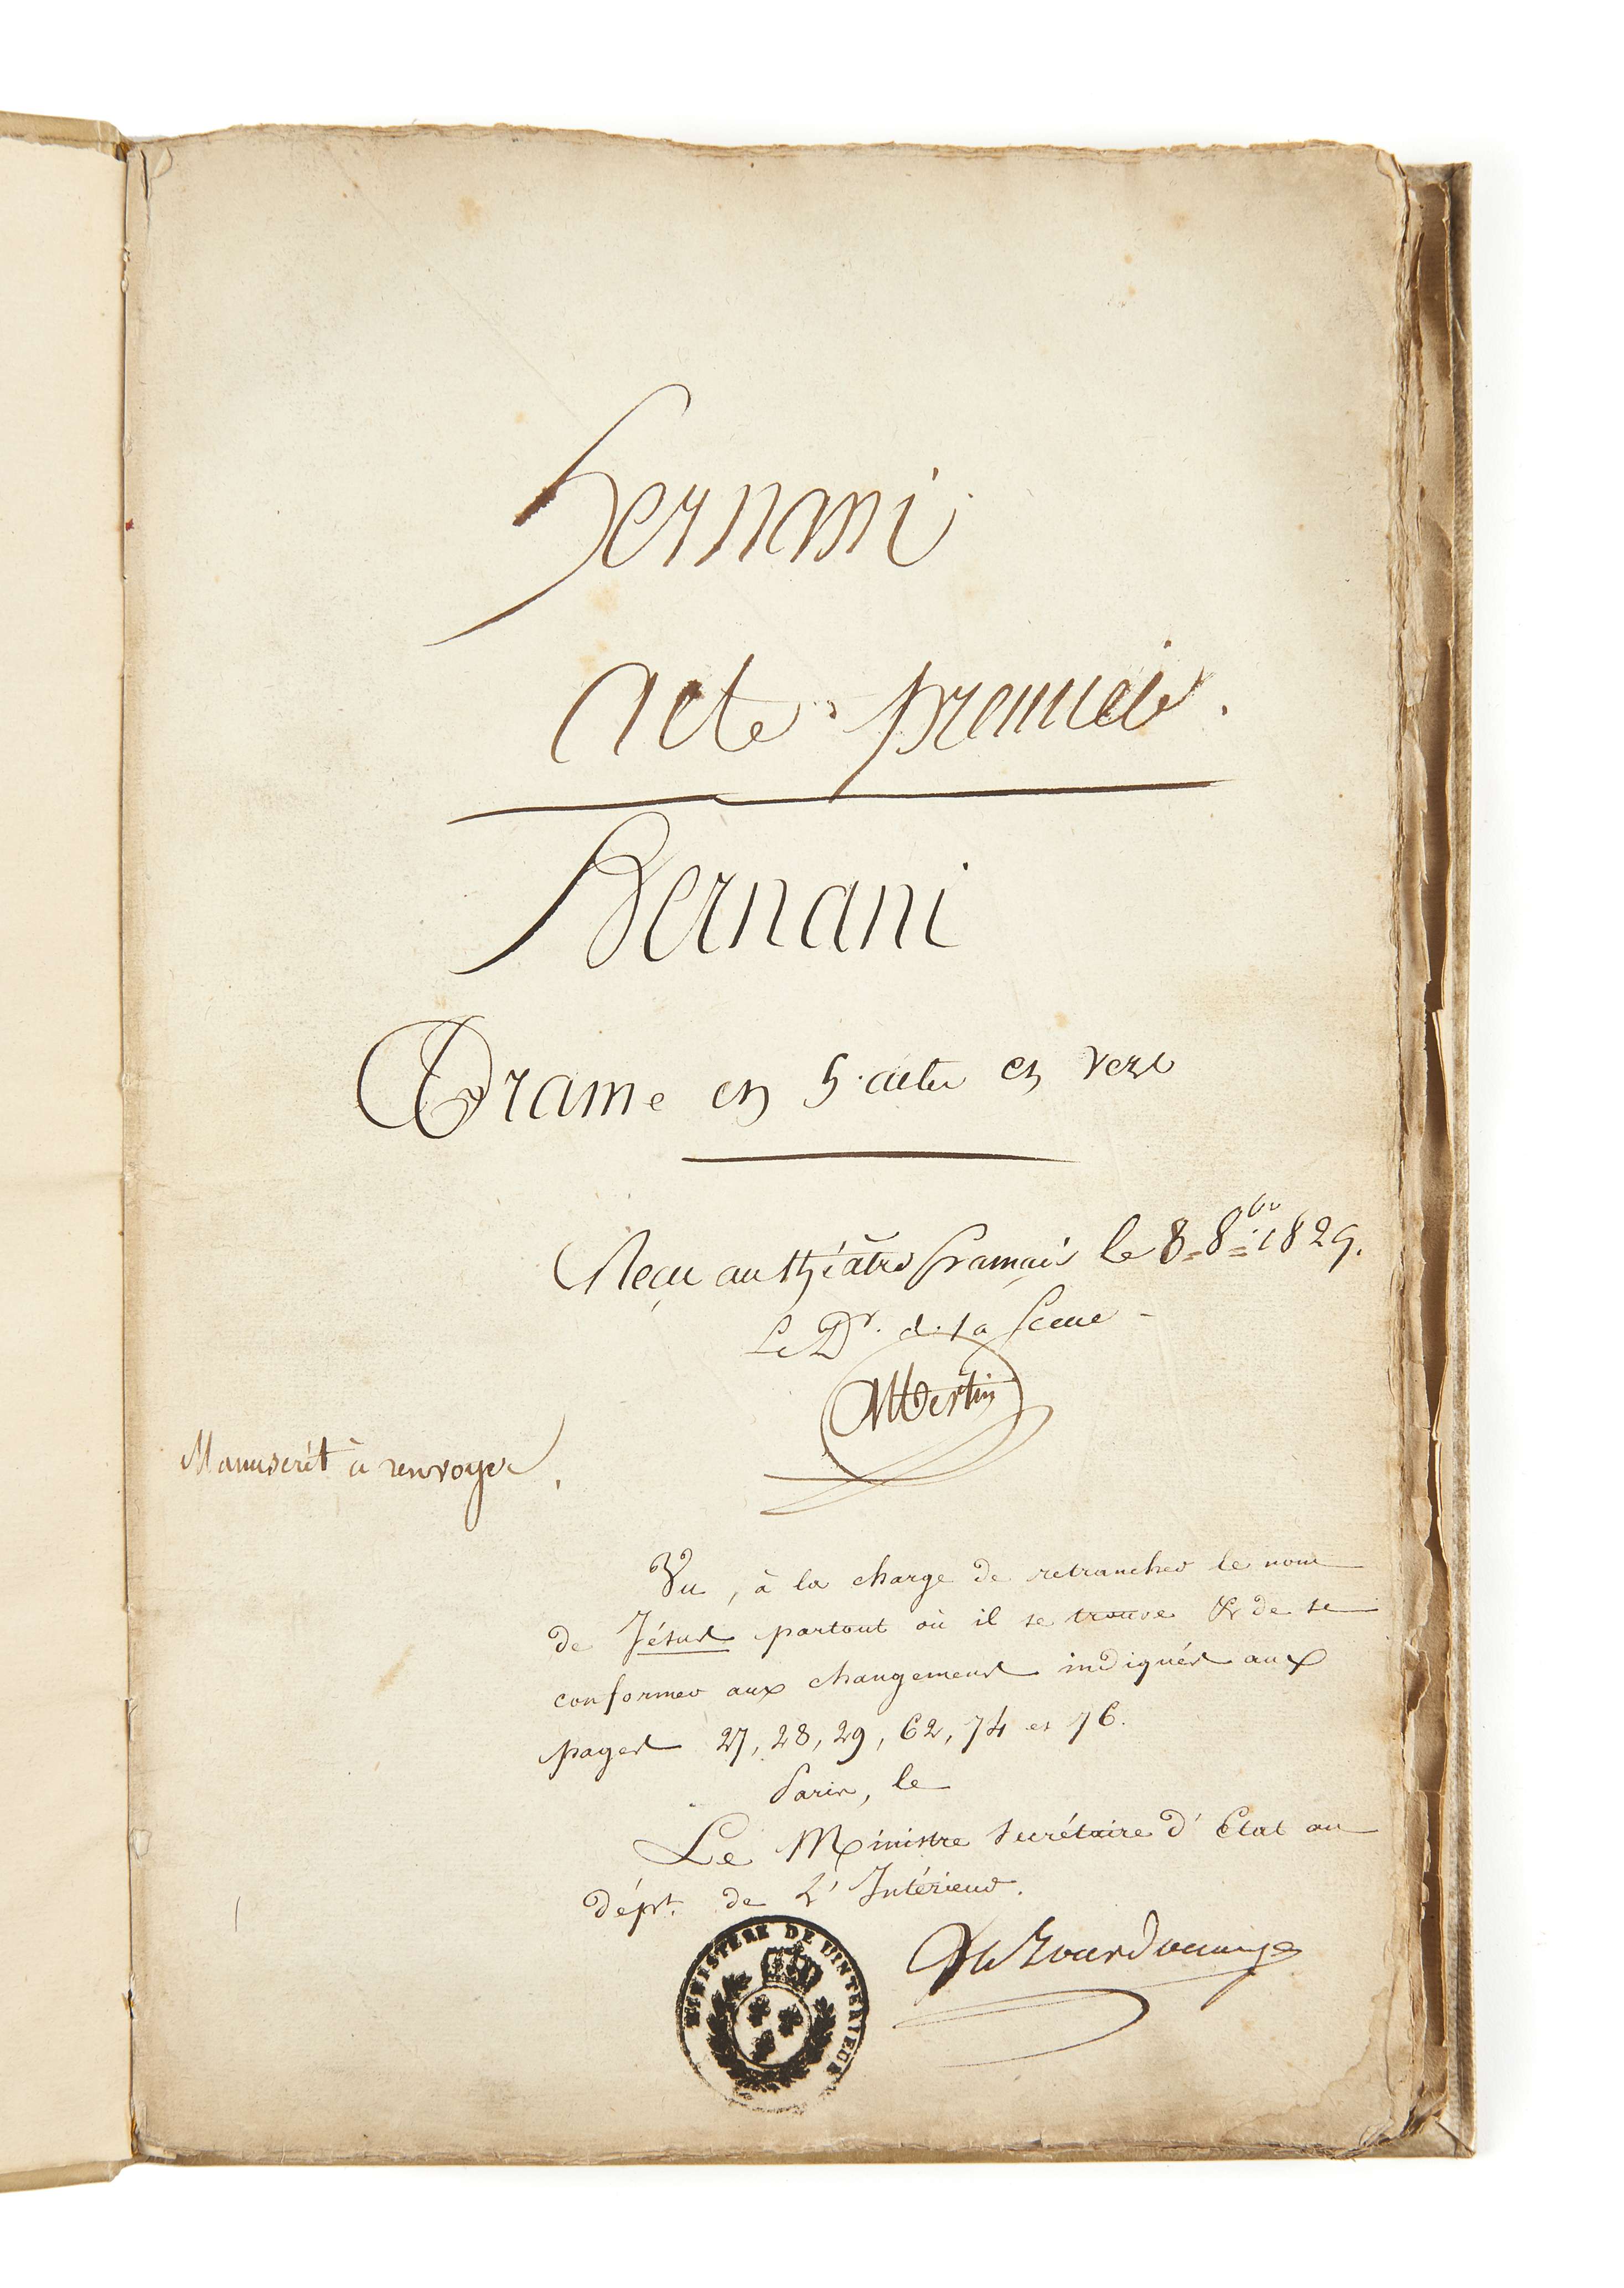 hernani
acte premier.
hernani
Drame en 5 actes en vers
Reçu au théâtre français le 8 8bre 1829.
Le Dr. de la Scene
Albertin
Manuscrit à renvoyer.
Vu, à la charge de retrancher le nom
de Jésus partout où il se trouve & de se
conformer aux changemens indiqués aux
pages 27, 28, 29, 62, 74 et 76.
Paris, le
Le Ministre Secrétaire d'Etat au
dépt. de L'Intérieur.
MINISTERE DE L'INTERIEUR